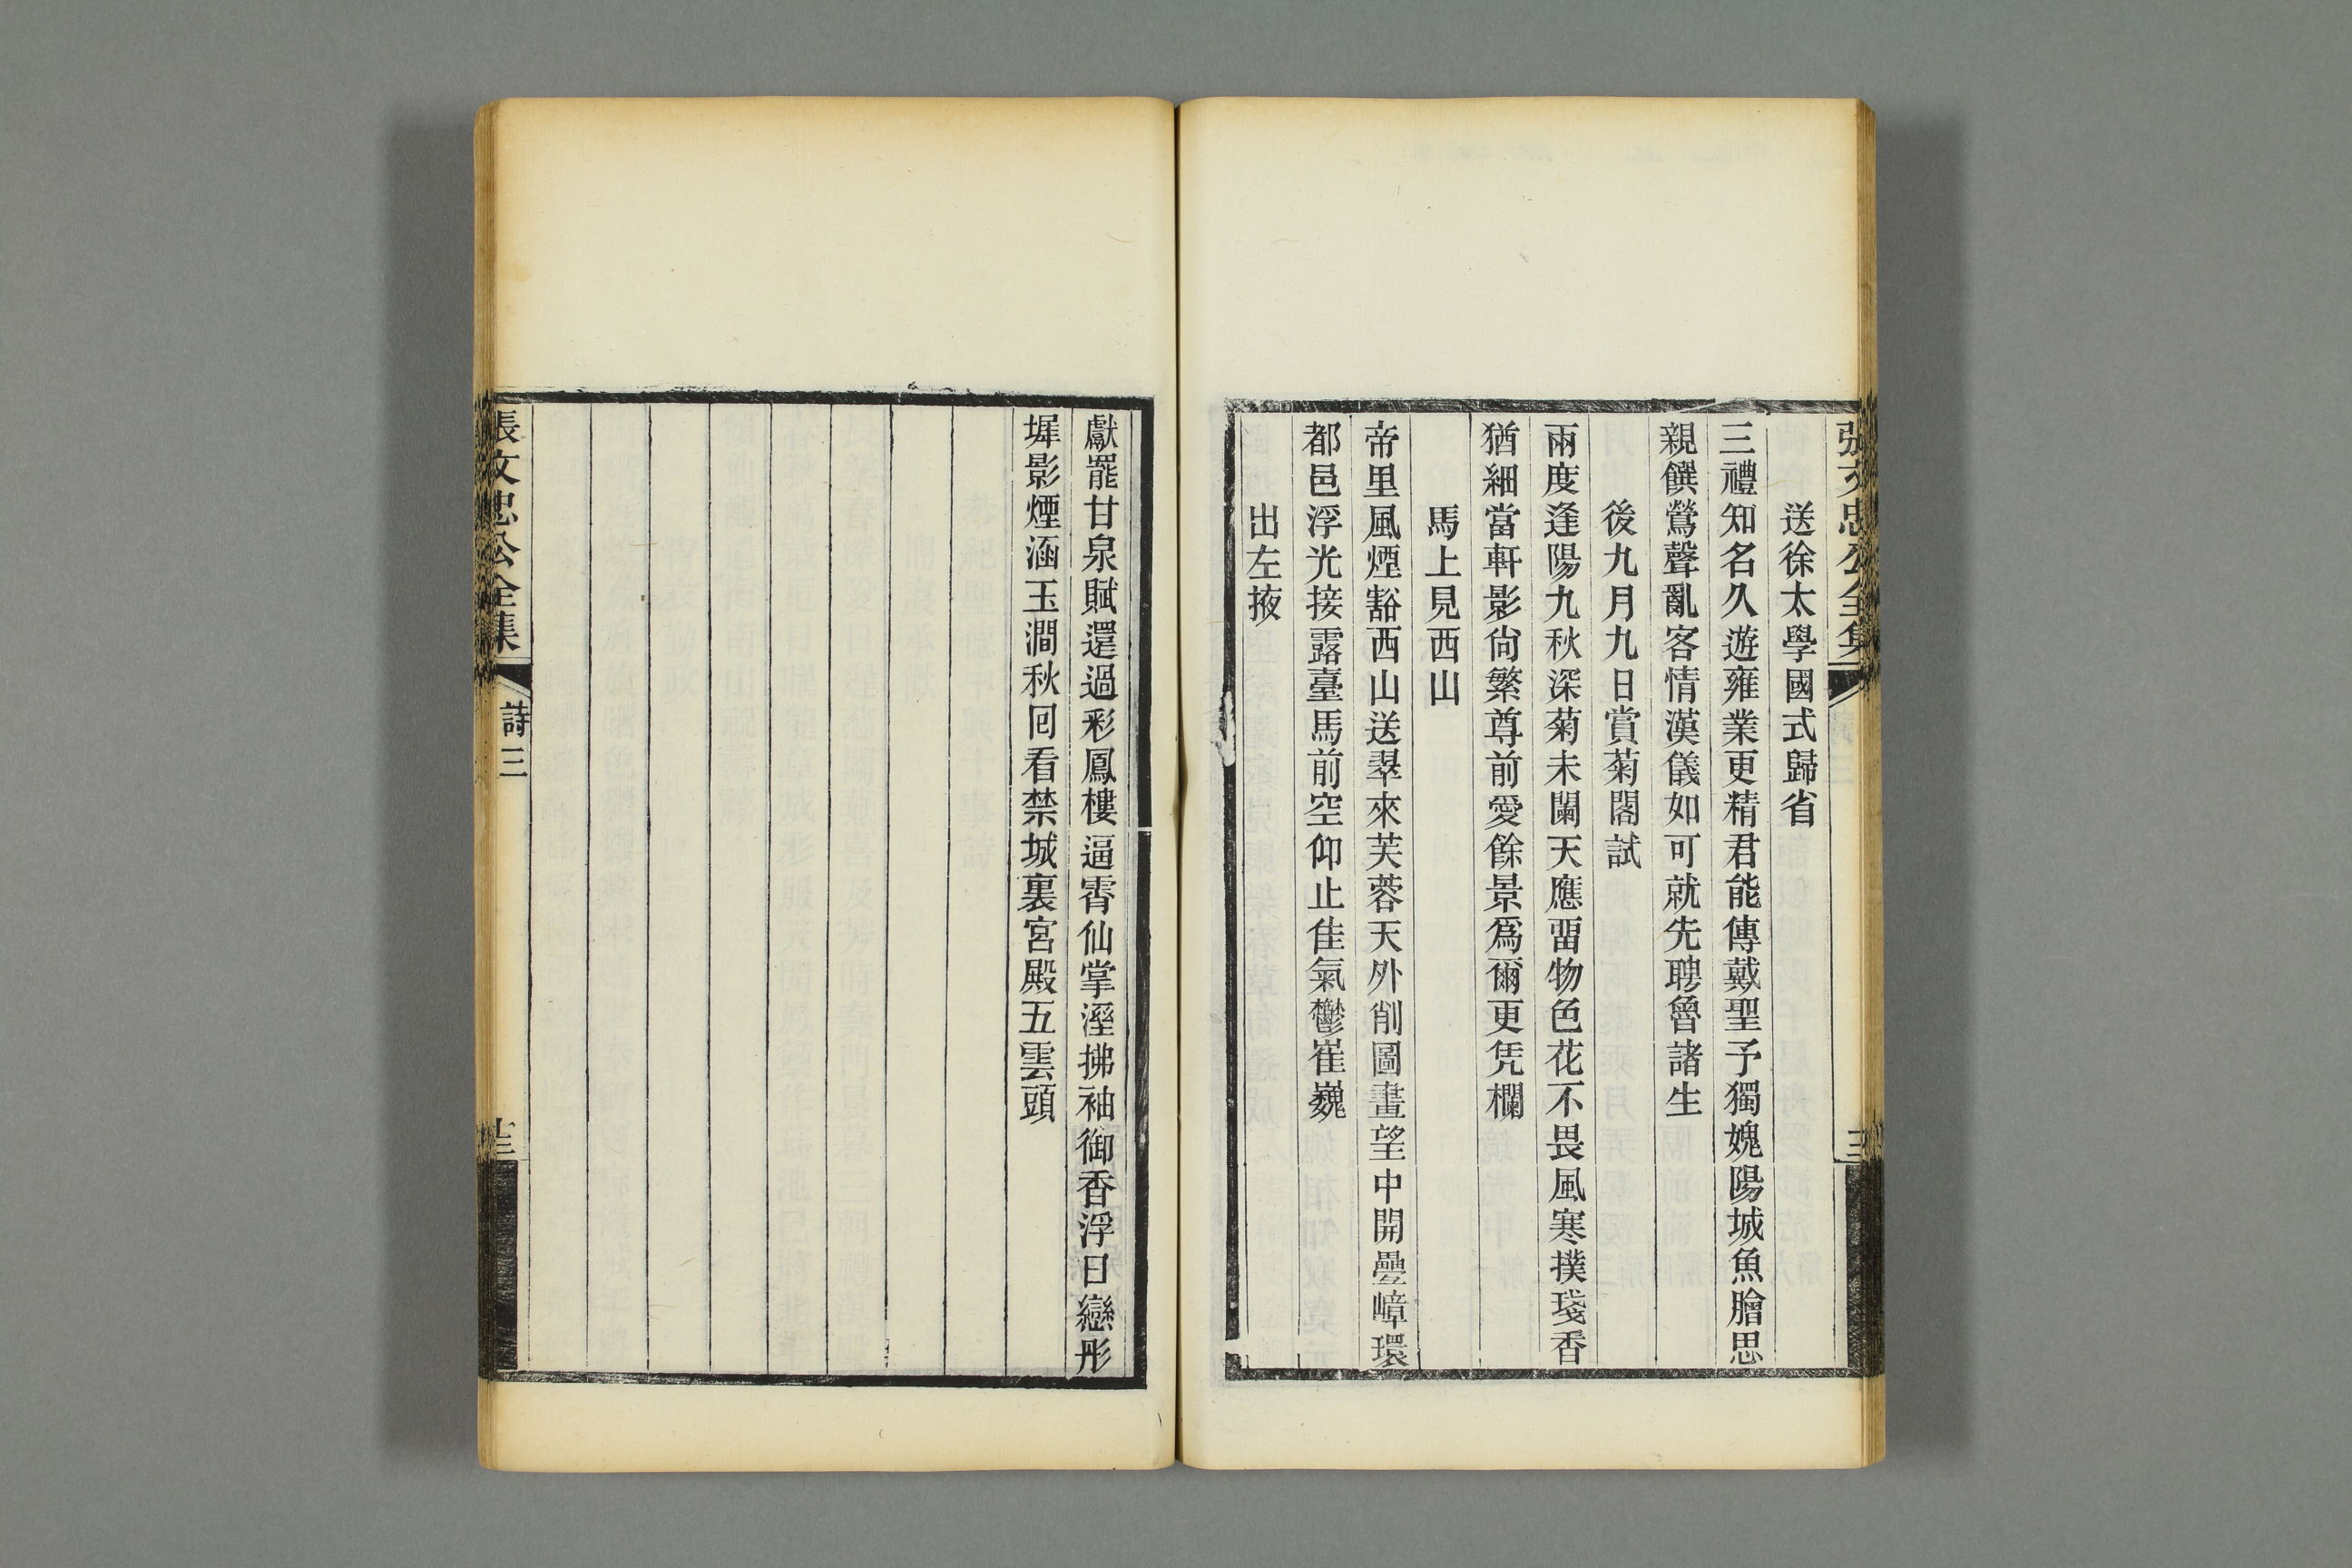 張文忠公全集
送徐太學國式歸省
三禮知名久遊雍業更精君能傳戴聖予獨媿陽城魚膾思
親饌鶯聲亂客情漢儀如可就先聘魯諸生
後九月九日賞菊閣試
兩度逢陽九秋深菊未闌天應畱物色花不畏風寒撲琖香
猶細當軒影尙繁尊前愛餘景爲爾更凭欄
馬上見西山
帝里風煙豁西山送翠來芙蓉天外削圖畫望中開疊嶂環
都邑浮光接露臺馬前空仰止佳氣鬱崔巍
出左掖
獻罷甘泉賦還過彩鳳樓逼霄仙掌溼拂袖御香浮日戀彤
墀影煙涵玉澗秋囘看禁城裏宮殿五雲頭
張文忠公全集
詩三